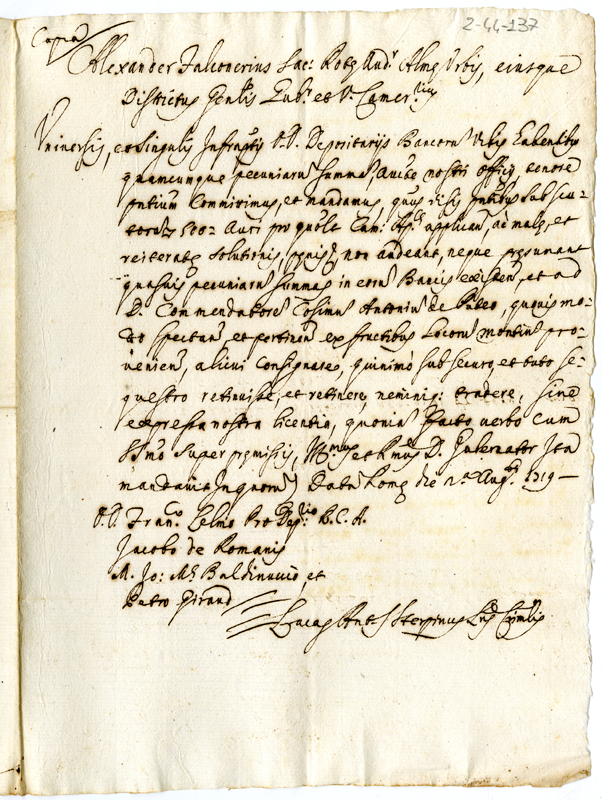 2-44-137
Copia
Alexander Falconerius Sac: Rotę Aud.r Almę Urbis, eiusque
Districtus Gen.lis Gub.r et V. Camer.rius
Universis, et singulis Infrascriptis DD. Depositarijs Bancorũ Urbis habentibus
quamcumque pecuniarũ summã, Auc.te nostri officij tenore
pñtium Committimus, et mandamus, quus sub scu-
torũ 500 Auri pro quolt Cam: Ap.lę applican, ac malę, et
reiteratę solutionis, pęnis, non audeant, neque pręsumant
quasuis pecuniarũ summas in eorũ Bancis existen, et ad
D. Commendatorẽ Cosimũ Antoniũ de Puteo, quouis mo-
do spectan, et pertinen ex fructibus Locorũ montiũ pro-
venien, alicui consignare, quinimò sub securo, et tuto se-
questro retinuisse, et retinere, neminiq: tradere, sine
expressa nostra licentia, quoniã facto verbo cum
SSmo super pręmissis, Ill.mus et R.mus D. Gubernator Ita
mandavit In quorũ Datũ Romę die 2.a Aug.ti 1719 —
DD. Fran.co Lelmo Pro Dep.rio R. C. A.
Jacobo de Romanis
M. Jo: M.a Baldinuccio, et
Petro Giraud
Lucas Ant.s Sterpinus